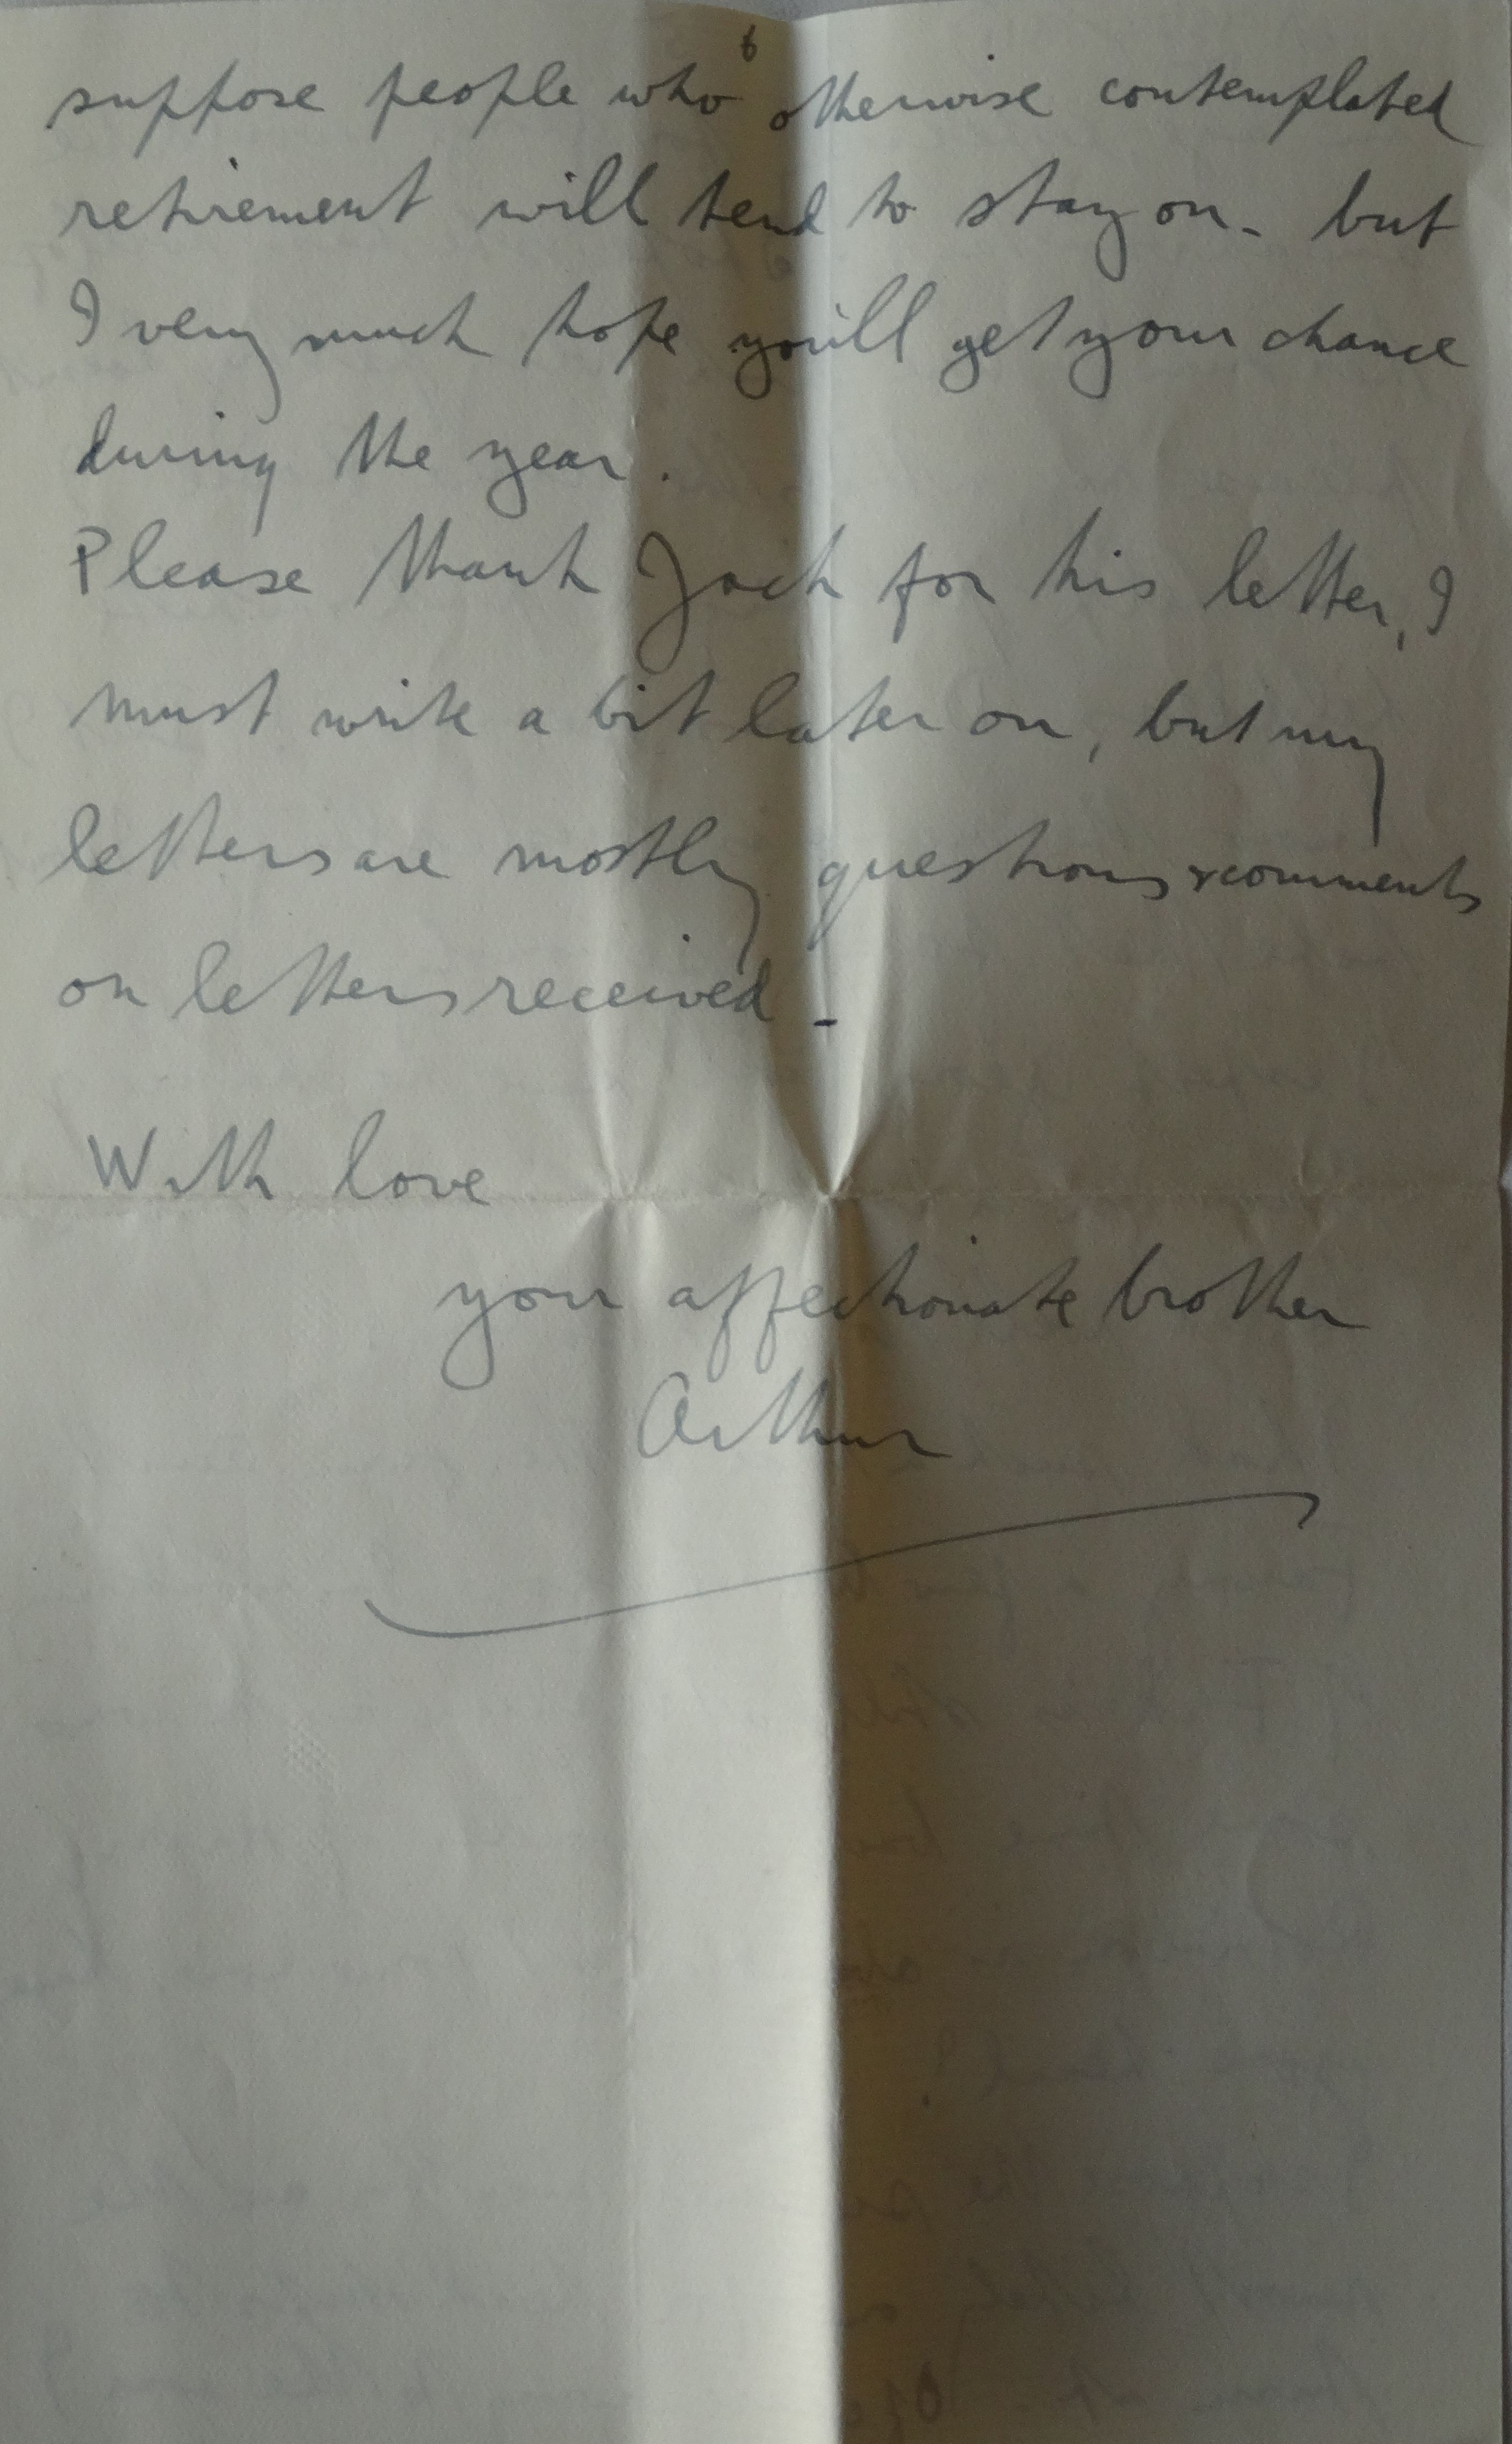 6
suppose people who otherwise contemplated
retirement will tend to stay on - but
I very much hope you'll get your chance
during the year.
Please thank Jack for his letter, I
must write a bit later on, but my
letters are mostly questions & comments
on letters received -
With love
your affectionate brother
Arthur